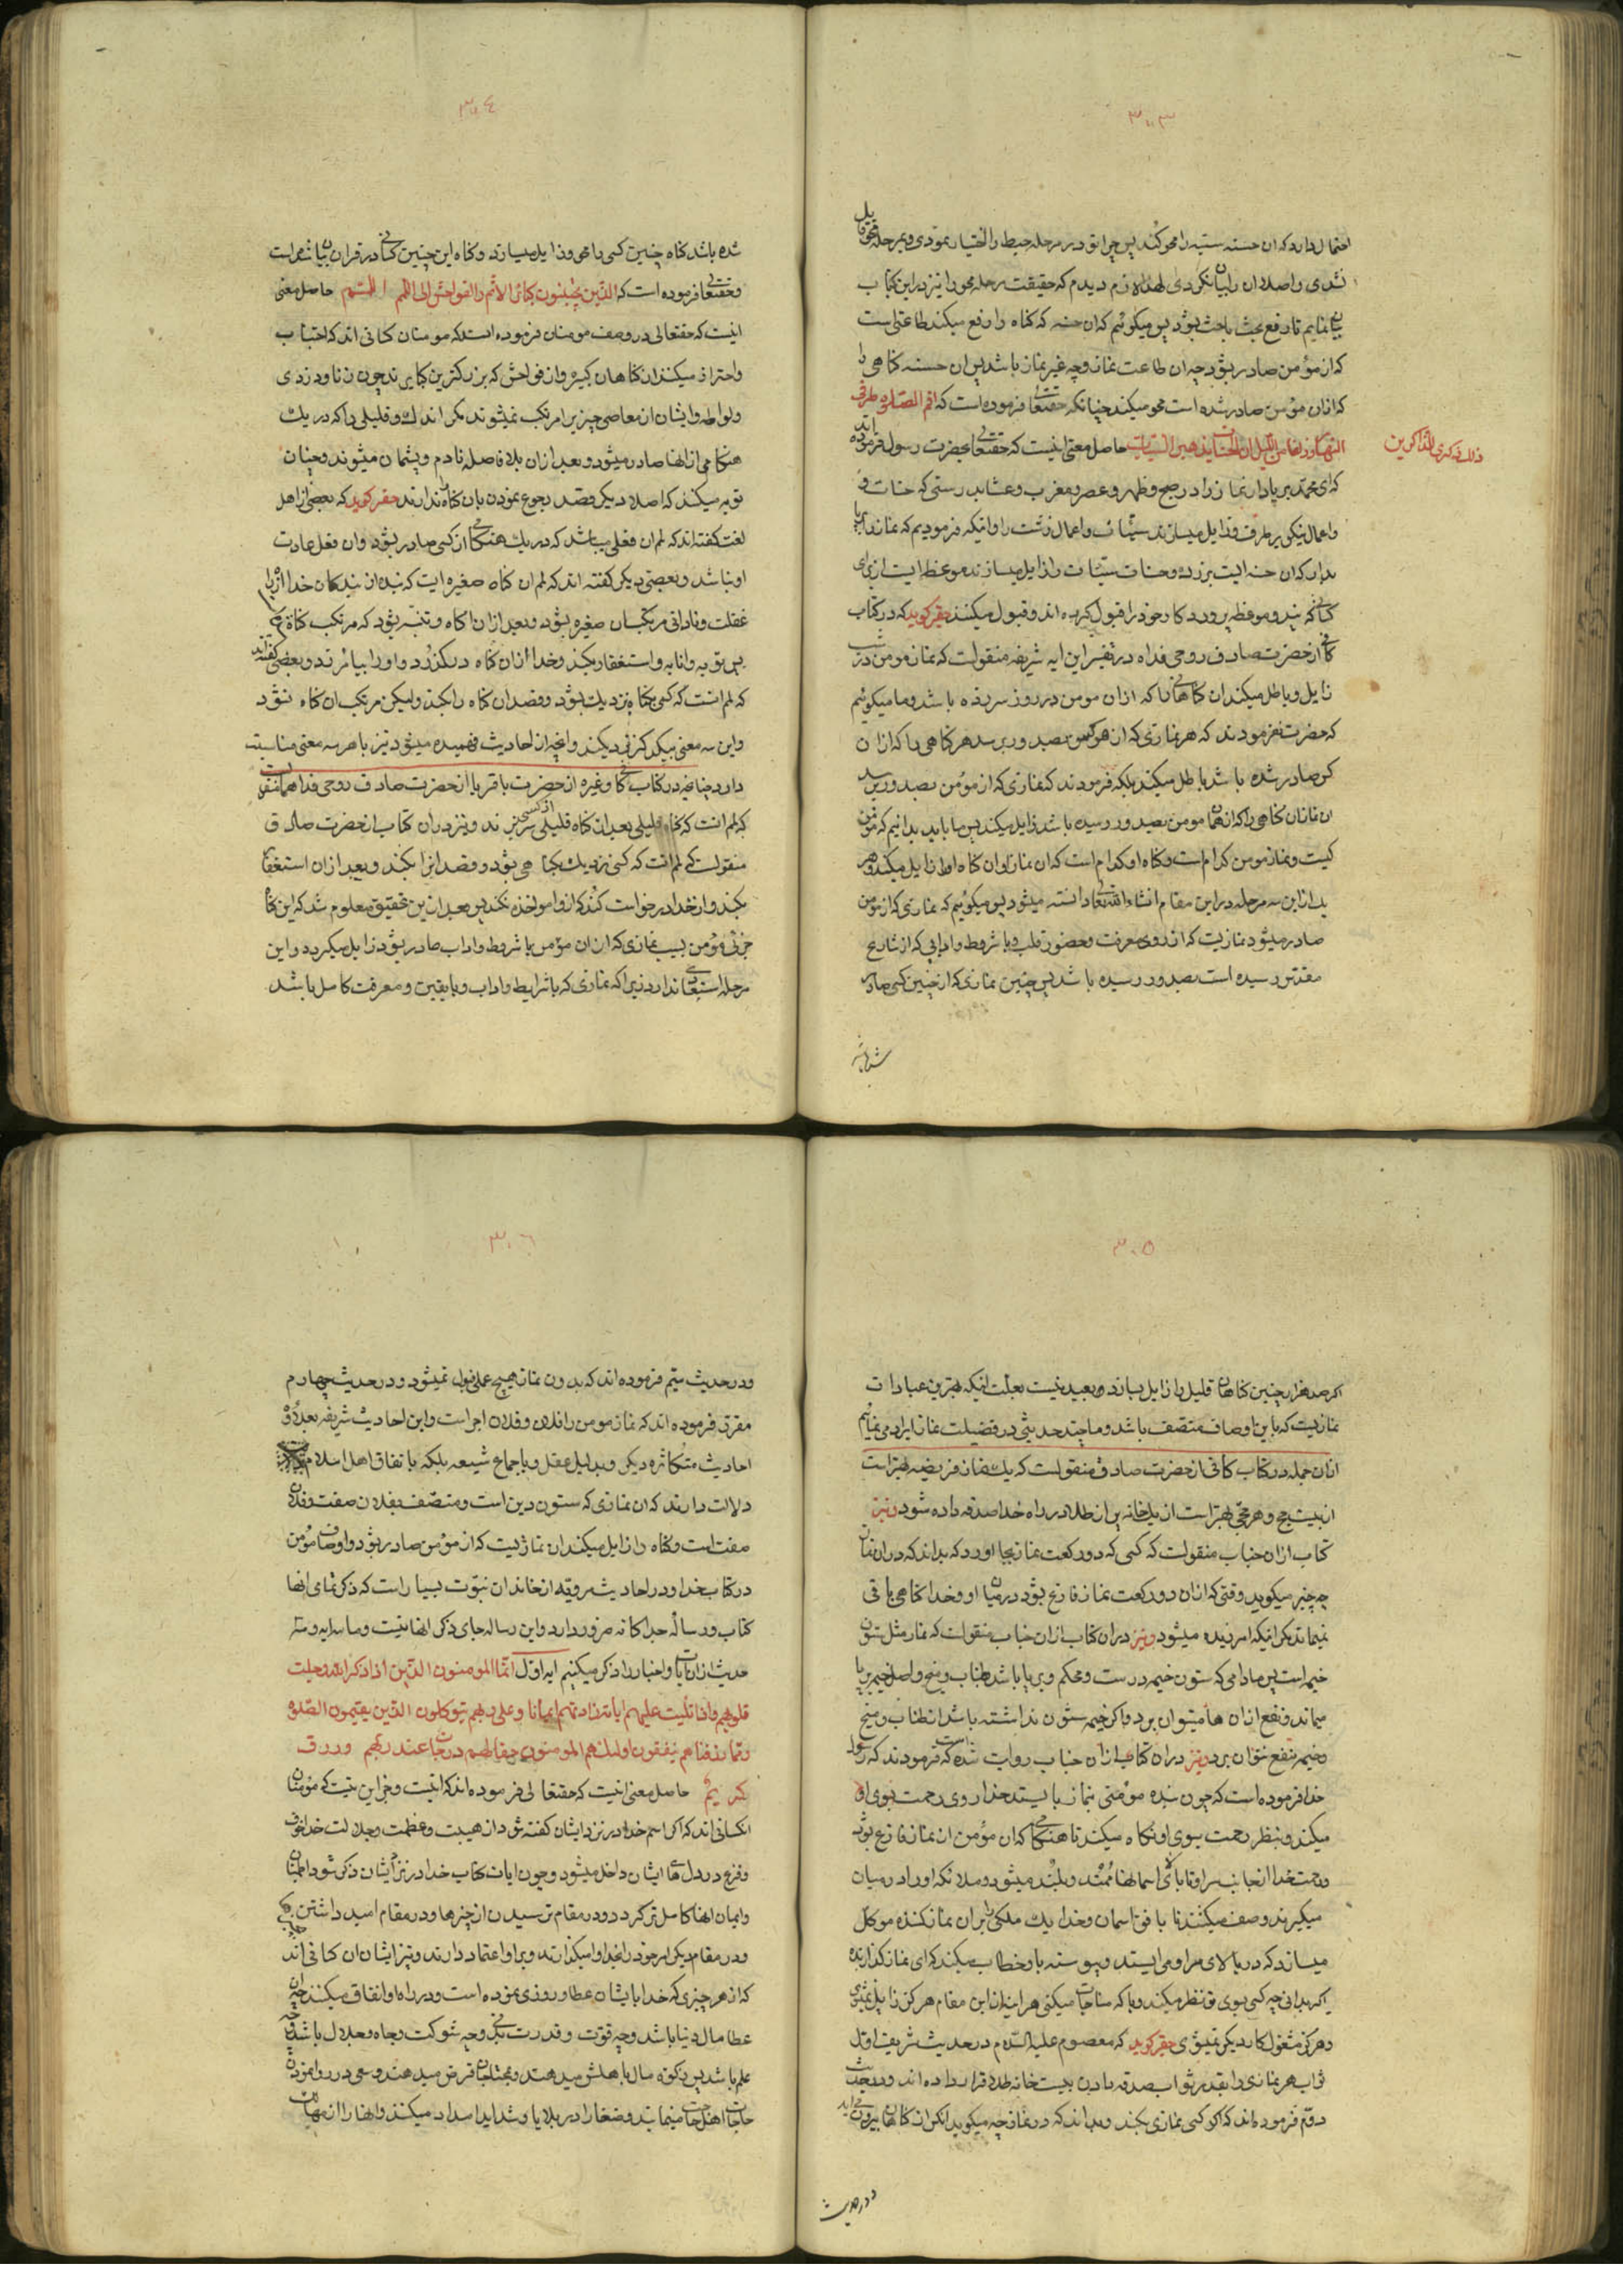 ۳۰۳
احتمال دارد که ان حسنه سیئه را محو کند پس چرا تو در مرحله حبط را اختیار نمودی و بمرحله محو قایل
نشدی و اصلا ان را بیان نکردی لهذا لازم دیدم که حقیقت مرحله محو را نیز در این کتاب
بیان نمایم تا رفع بحث باحث بشود پس میکوئیم که ان حسنه که کناه را رفع میکند طاعتی است
که از مؤمن صادر بشود چه ان طاعت نماز و چه غیر نماز باشد پس ان حسنه کناهی را
که از ان مؤمن صادر شده است محو میکند چنانکه حقتعالی فرموده است که اقم الصلوة طرفی
النهار و زلفا من اللیل ان الحسنات یذهبن السیئات حاصل معنی اینست که حقتعالی بحضرت رسول فرموده اند
ذلک ذکری للذاکرین
که ای محمد بر پا دار نماز را در صبح و ظهر و عصر و مغرب و عشا بدرستی که حسنات و
و اعمال نیکو بر طرف و زایل میسازند سیئات و اعمال زشت را و انیکه فرمودیم که نماز را بر پا
بدار که ان حسنه ایست بزرك و حسنات سیئات را زایل میسازند موعظه ایست از برای
کسانی که پند و موعظه پروردکار خود را قبول کرده اند و قبول میکنند حقیر کوید که در کتاب
کافی از حضرت صادق روحی فداه در تفسیر این ایه شریفه منقولست که نماز مومن در شب
زایل و باطل میکند ان کاهانی را که از ان مومن در روز سر زده باشد و ما میکوئیم
که حضرت نفرمودند که هر نمازی که از هر کس بصدور برسد هر کناهی را که از ان
کس صادر شده باشد باطل میکند بلکه فرمودند که نمازی که از مؤمن بصدور برسد
ان نماز ان کناهی را که از همان مومن بصدور رسیده باشد زایل میکند پس ما باید بدانیم که مؤمن
کیست و نماز مومن کدام است و کناه او کدام است که ان نماز او ان کناه او را زایل میکند و هر
یك از این سه مرحله در این مقام انشاء الله تعالی دانسته میشود پس میکوئیم که نمازی که از مؤمن
صادر میشود نمازیست که از روی معرفت و حضور قلب و با شروط و ادابی که از شارع
مقدس رسیده است بصدور رسیده باشد پس چنین نمازی که از چنین کسی صادر
شده باشد
۳۰۴
شده باشد کناه چنین کسی را محو و زایل میسازد و کناه این چنین کسانی در قران بیان شده است
و حقتعالی فرموده است که الذین یجتنبون کبائر الاثم و الفواحش الا اللمم حاصل معنی
اینست که حقتعالی در وصف مومنان فرموده است که مومنان کسانی اند که اجتناب
و احتراز میکنند از کناهان کبیره و از فواحش که بزرکترین کبایرند چون زنا و دزدی
و لواطه و ایشان از معاصی چیزیرا مرتکب نمیشوند مکر اندك و قلیلی را که در یك
هنکامی از انها صادر میشود و بعد از ان بلا فاصله نادم و پشمان میشوند و چنان
توبه میکنند که اصلا دیکر قصد رجوع نمودن بان کناه را ندارند حقیر کوید که بعضی از اهل
لغت کفته اند که لمم ان فعلی میباشد که در یك هنکامی از کسی صادر بشود و ان فعل عادت
او نباشد و بعضی دیکر کفته اند که لمم ان کناه صغیره ایست که بنده از بندکان خدا از راه
غفلت و نادانی مرتکب ان صغیره بشود و بعد از ان اکاه و متنبه بشود که مرتکب کناه شده
پس توبه و انابه و استغفار بکند و خدا از ان کناه در بکذرد و او را بیامرزد و بعضی کفته اند
که لمم انست که کسی بکناه نزدیك بشود و قصد ان کناه را بکند ولیکن مرتکب ان کناه نشود
و این سه معنی بیکدیکر نزدیکند و انچه از احادیث فهمیده میشود نیز با هر سه معنی مناسبت
دارد چنانچه در کتاب کافی و غیره از حضرت باقر یا از حضرت صادق روحی فداهما منقولست
که لمم انست که کناه قلیلی بعد از کناه قلیلی از کسی سر بزند و نیز در ان کتاب از حضرت صادق
منقولست که لمم انست که کسی نزدیك بکناهی بشود و قصد انرا بکند و بعد از ان استغفار
بکند و از خدا درخواست کند که از او مواخذه نکند پس بعد از این تحقیق معلوم شد که این کناه
جزئی مؤمن بسبب نمازی که از ان مؤمن با شروط و اداب صادر بشود زایل میکردد و این
مرحله استبعادی ندارد زیرا که نمازی که با شرایط و اداب و با یقین و معرفت کامل باشد
۳۰۵
اکر صد هزار چنین کناهان قلیل را زایل بسازد و بعید نیست بعلت اینکه بهترین عبادات
نمازیست که باین اوصاف متصف باشد و ما چند حدیثی در فضیلت نماز ایراد می نمائیم
از ان جمله در کتاب کافی از حضرت صادق منقولست که یك نماز فریضه بهتر است
از بیست حج و هر حجی بهتر است از یك خانه پر از طلا در راه خدا صدقه داده شود و نیز در
کتاب از ان جناب منقولست که کسی که دو رکعت نماز بجا اورد که بداند که در ان نماز
چه چیز میکوید وقتی که از ان دو رکعت نماز فارغ بشود در میان او و خدا کناهی باقی
نمیماند مکر انیکه امرزیده میشود و نیز در ان کتاب از ان جناب منقولست که نماز مثل ستون
خیمه است پس مادامی که ستون خیمه درست و محکم و بر پا باشد طناب و میخ و اصل خیمه بر پا
میماند و نفع از ان ها میتوان برد و اکر خیمه ستون نداشته باشد از طناب و میخ
و خیمه نفع نتوان برد و نیز در ان کتاب از ان جناب روایت شده است که فرمودند که رسول
خدا فرموده است که چون بنده مؤمنی بنماز بایستد خدا روی رحمت بسوی او
میکند و بنظر رحمت بسوی او نکاه میکند تا هنکامی که ان مؤمن از نماز فارغ بشود
و رحمت خدا از جانب سر او تا بالای اسمانها ممتد و بلند میشود و ملائکه او را در میان
میکیرند و صف میکشند تا بافق اسمان و خدا یك ملکی را بر ان نماز کننده موکل
میسازد که در بالای سر او می ایستد و پیوسته باو خطاب میکند که ای نماز کذارنده
اکر بدانی چه کسی بسوی تو نظر میکند و با که مناجات میکنی هراینه از این مقام هرکز زایل نمیشوی
و هرکز مشغول کار دیکر نمیشوی حقیر کوید که معصوم علیه السلام در حدیث شریف اول
ثواب هر نمازی را بقدر ثواب صدقه دادن بیست خانه طلا قرار داده اند و در حدیث
دوم فرموده اند که اکر کسی نمازی بکند و بداند که در نماز چه میکوید انکس از کناهان بیرون می اید
و در حدیث
۳۰۶
و در حدیث سیم فرموده اند که بدون نماز هیچ عملی قبول نمیشود و در حدیث چهارم
مقرر فرموده اند که نماز مومن را فلان و فلان اجر است و این احادیث شریفه بعلاوه
احادیث متکاثره دیکر و بدلیل عقل و باجماع شیعه بلکه باتفاق اهل اسلام
دلالت دارند که ان نمازی که ستون دین است و متصف بفلان صفت و فلان
صفت است و کناه را زایل میکند ان نمازیست که از مؤمن صادر بشود و اوصاف مؤمن
در کتاب خدا و در احادیث مرویه از خاندان نبوت بسیار است که ذکر تمامی انها
کتاب و رسالهٔ جداکانه ضرور دارد و این رساله جای ذکر انها نیست و ما سه ایه و سه
حدیث از ان ایات و اخبار را ذکر میکنیم ایه اول انما المومنون الذین اذا ذکر الله وجلت
قلوبهم و اذا تلیت علیهم ایاته زادتهم ایمانا و علی ربهم یتوکلون الذین یقیمون الصلوة
و مما رزقناهم ینفقون اولئك هم المومنون حقا لهم درجات عند ربهم و رزق
کریم حاصل معنی اینست که حقتعالی فرموده اند که اینست و جز این نیست که مؤمنان
انکسانی اند که اکر اسم خدا در نزد ایشان کفته شود از هیبت و عظمت و جلالت خدا خوف
و فزع در دل های ایشان داخل میشود و چون ایات کتاب خدا در نزد ایشان ذکر شود اطمینان
و ایمان انها کامل تر کردد و در مقام ترسیدن از چیزها و در مقام امید داشتن
و در مقام دیکر امر خود را بخدا وا میکذارند و براو اعتماد دارند و نیز ایشان ان کسانی اند
که از هر چیزی که خدا بایشان عطا و روزی نموده است و در راه او انفاق میکنند چه ان
عطا مال دنیا باشد و چه قوت و قدرت بدنی و چه شوکت و جاه و جلال باشد و چه
علم باشد پس زکوة مال باهلش میدهند و بمحتاجان قرض میدهند و سعی در روا نمودن
حاجات اهل حاجت مینمایند و ضعفا را در بلایا و شداید امداد میکنند و انها را از مهالك